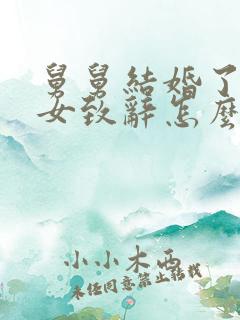 舅舅結婚了
女致辭怎麼
小小木西
未經同意禁止轉載